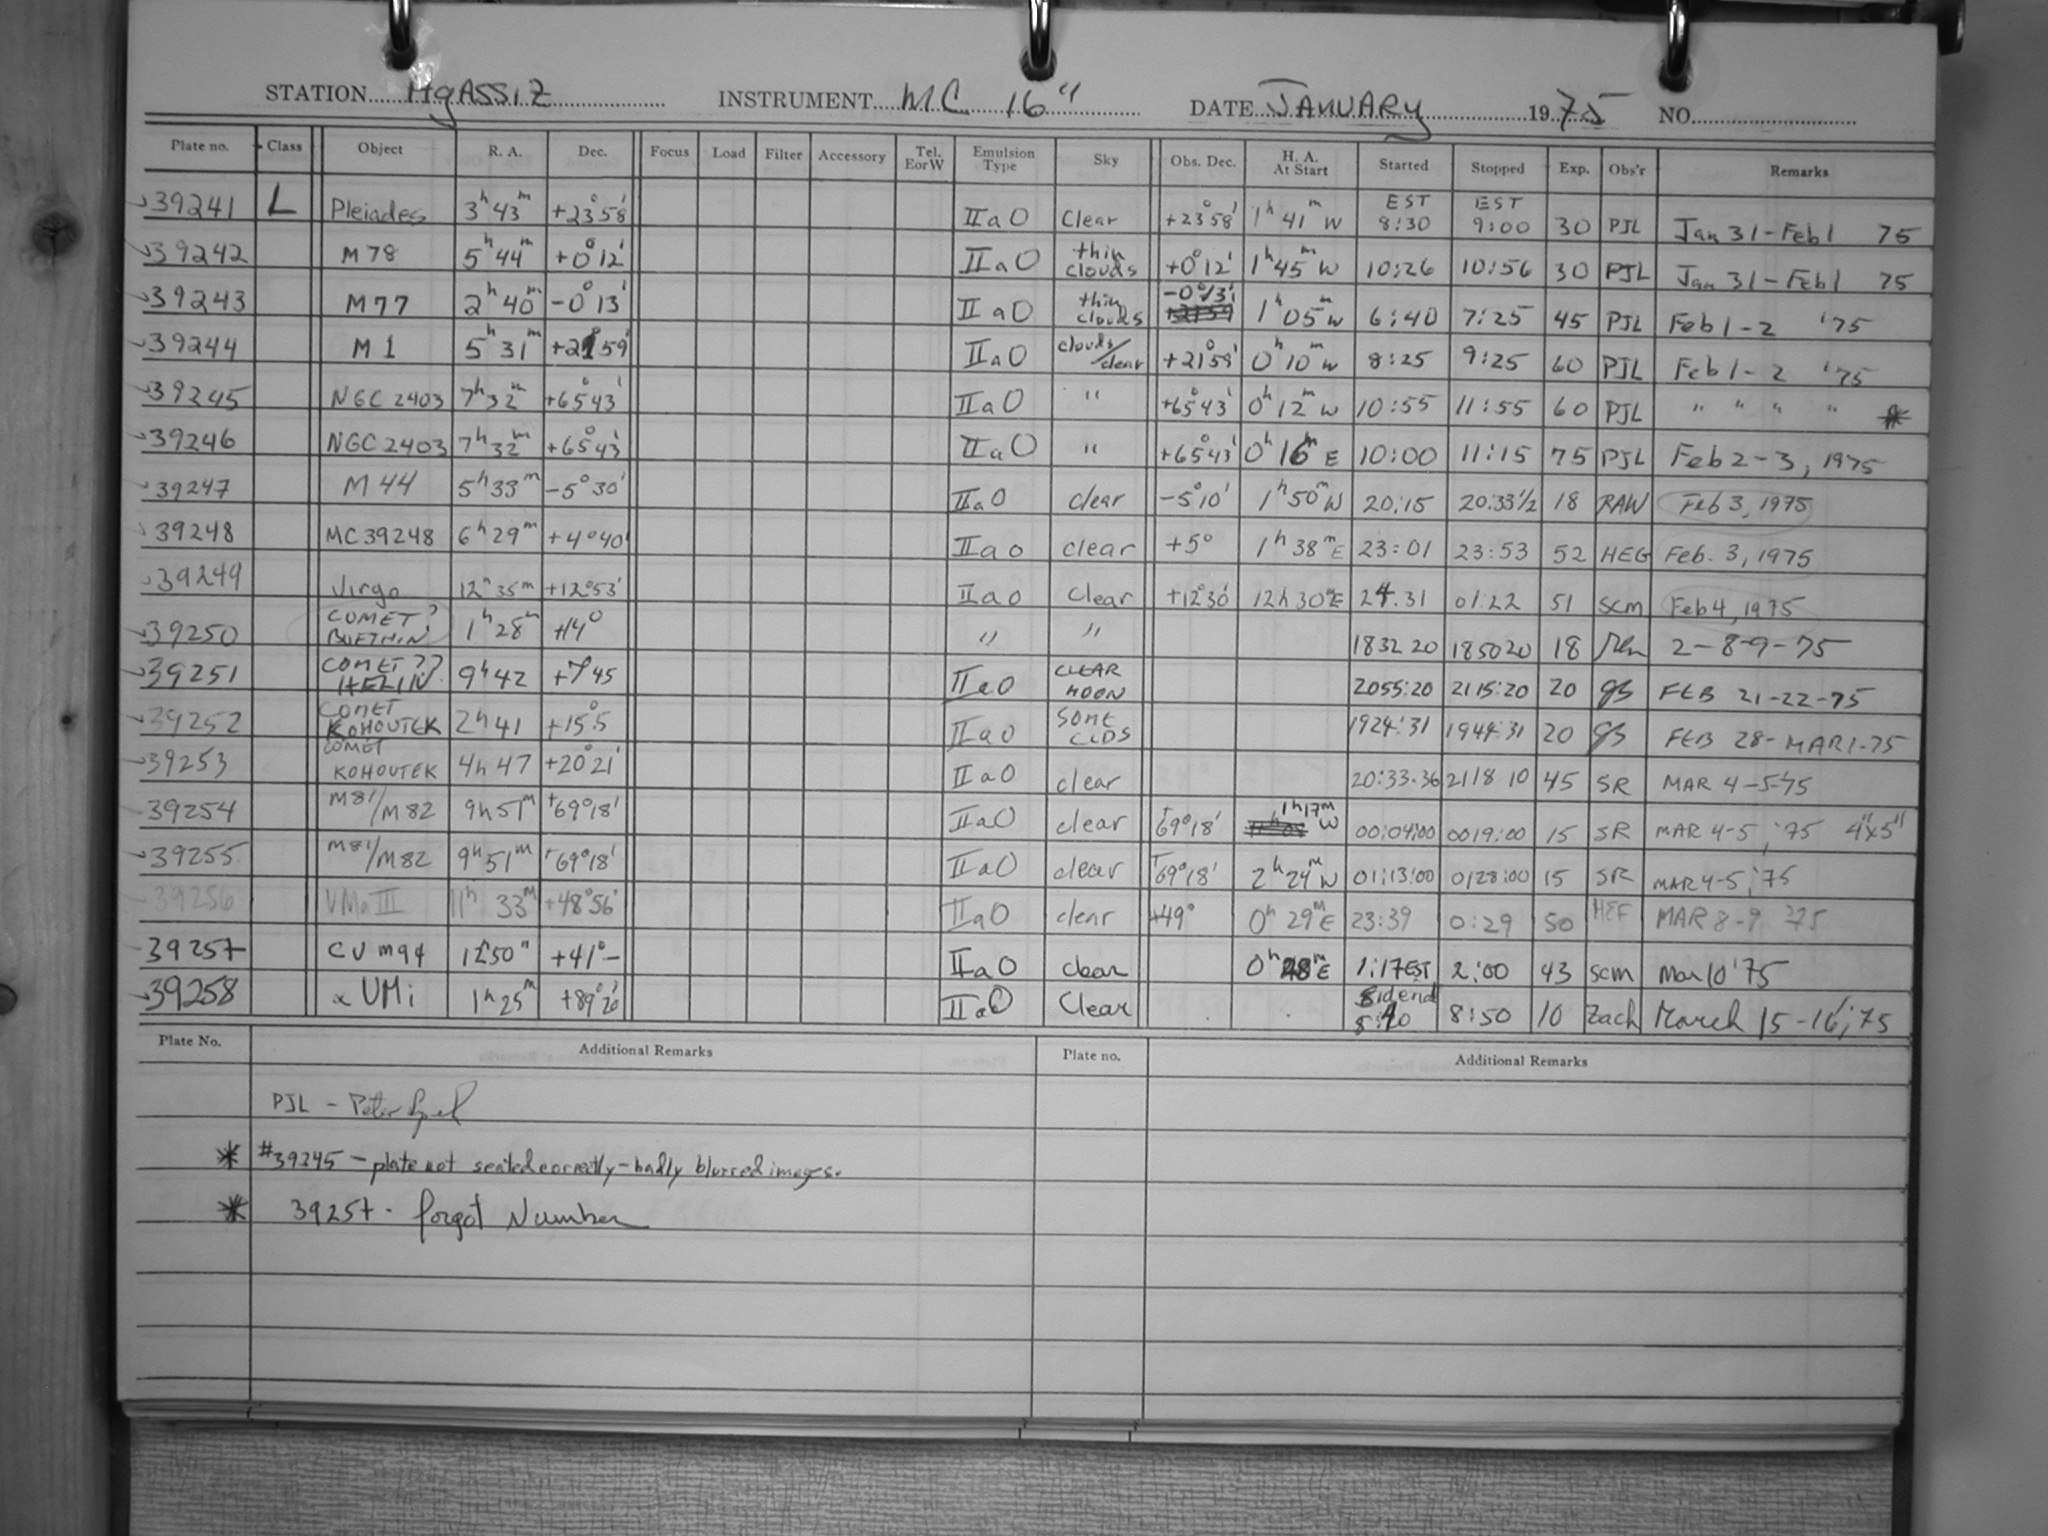 STATION Agassiz INSTRUMENT MC 16" DATE January 1975 NO.
Plate no. Class Object R. A. Dec. Focus Load Filter Accessory Tel. E or W Emulsion Type Sky Obs. Dec. H. A. At Start Started Stopped Exp. Obs'r Remarks
39241 L Pleiades 3h 43m +23°58' IIaO Clear +23°58' 1h 41m W EST 8:30 EST 9:00 30 PJL Jan 31-Feb 1 75
39242 M 78 5h 44m +0°12' IIaO thin clouds +0°12' 1h 45m W 10:26 10:56 30 PJL Jan 31-Feb 1 75
39243 M 77 2h 40m -0°13' IIaO thin clouds -0°13' 1h 05m W 6:40 7:25 45 PJL Feb 1-2 '75
39244 M 1 5h 31m +21°59' IIaO clouds/clear +21°59' 0h 10m W 8:25 9:25 60 PJL Feb 1-2 '75
39245 NGC 2403 7h 32m +65°43' IIaO " +65°43' 0h 12m W 10:55 11:55 60 PJL " " " " *
39246 NGC 2403 7h 32m +65°43' IIaO " +65°43' 0h 16m E 10:00 11:15 75 PJL Feb 2-3, 1975
39247 M 44 5h 33m -5°30' IIaO clear -5°10' 1h 50m W 20:15 20:33 1/2 18 RAW Feb 3, 1975
39248 MC39248 6h 29m +4°40' IIaO clear +5° 1h 38m E 23:01 23:53 52 HEG Feb. 3, 1975
39249 Virgo 12h 35m +12°53' IIaO Clear +12°30' 12h 30m E 24.31 01:22 51 scm Feb 4, 1975
39250 COMET? BOETHIN? 1h 28m +14° " " 1832 20 1850 20 18 2-8-9-75
39251 COMET?? HELIN 9h 42 +7 45 IIaO CLEAR MOON 2055:20 2115:20 20 gs FEB 21-22-75
39252 COMET KOHOUTEK 2h 41 +15°.5 IIaO SOME CLDS 1924:31 1944:31 20 gs FEB 28-MAR 1-75
39253 COMET KOHOUTEK 4h 47 +20°21' IIaO clear 20:33.36 2118 10 45 SR MAR 4-5-'75
39254 M81/M82 9h 51m +69°18' IIaO clear +69°18' 1h 17m W 00:04:00 0019:00 15 SR MAR 4-5, '75 4"x5"
39255 M81/M82 9h 51m +69°18' IIaO clear +69°18' 2h 24m W 01:13:00 0128:00 15 SR MAR 4-5, '75
39256 UMa III 11h 33m +48°56' IIaO clear +49° 0h 29m E 23:39 0:29 50 HEF MAR 8-9 '75
39257 CV m94 12h50m +41°- IIaO clear 0h 28m E 1:17 EST 2:00 43 scm Mar 10 '75
39258 α UMi 1h 25m +89°20' IIaO Clear 8:50 10 Zach March 15-16, '75
Plate No. Additional Remarks Plate no. Additional Remarks
PJL - Peter
* #39245 - plate not seated correctly - badly blurred images.
* 39257 - forgot Number